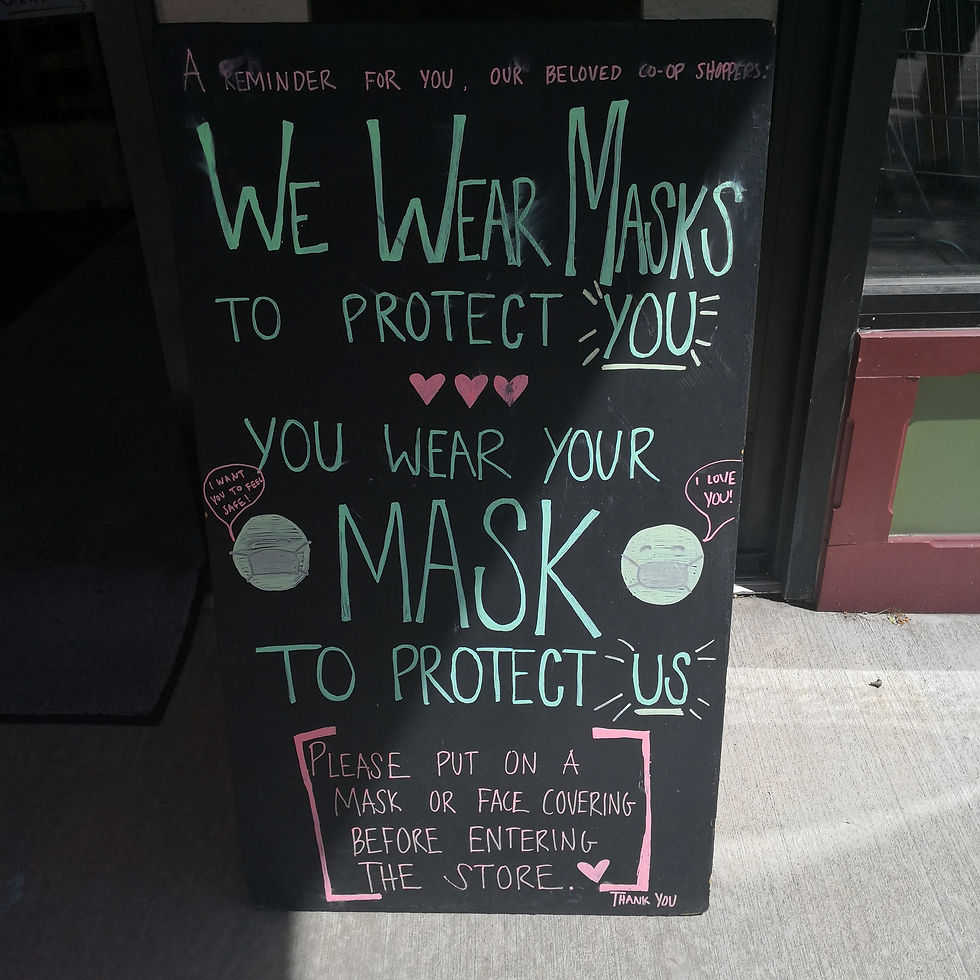 A REMINDER FOR YOU, OUR BELOVED CO-OP SHOPPERS:
WE WEAR MASKS
TO PROTECT YOU
YOU WEAR YOUR
I WANT
YOU TO FEEL
SAFE!
I LOVE
YOU!
MASK
TO PROTECT US
PLEASE PUT ON A
MASK OR FACE COVERING
BEFORE ENTERING
THE STORE.
THANK YOU